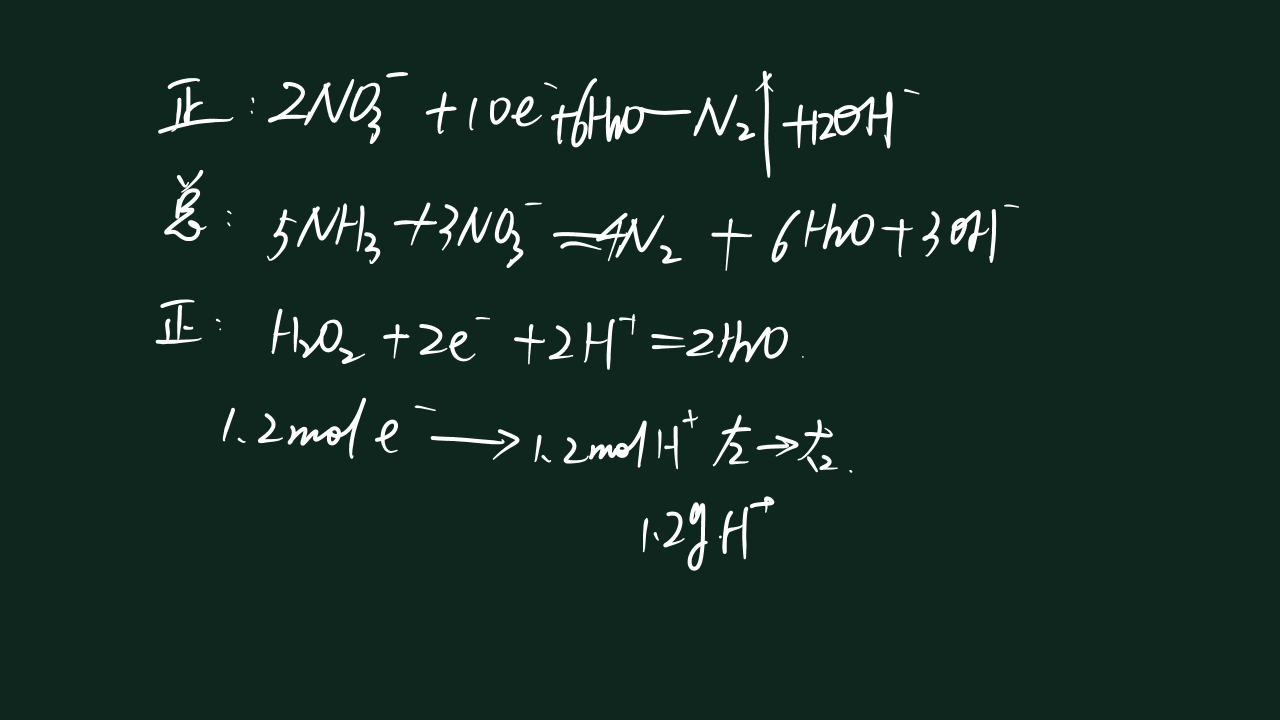 正: 2NO₃⁻ + 10e⁻ + 6H₂O — N₂↑ + 12OH⁻
总: 5NH₃ + 3NO₃⁻ = 4N₂ + 6H₂O + 3OH⁻
正: H₂O₂ + 2e⁻ + 2H⁺ = 2H₂O.
1.2mol e⁻ → 1.2mol H⁺ 左 →
1.2g H⁺